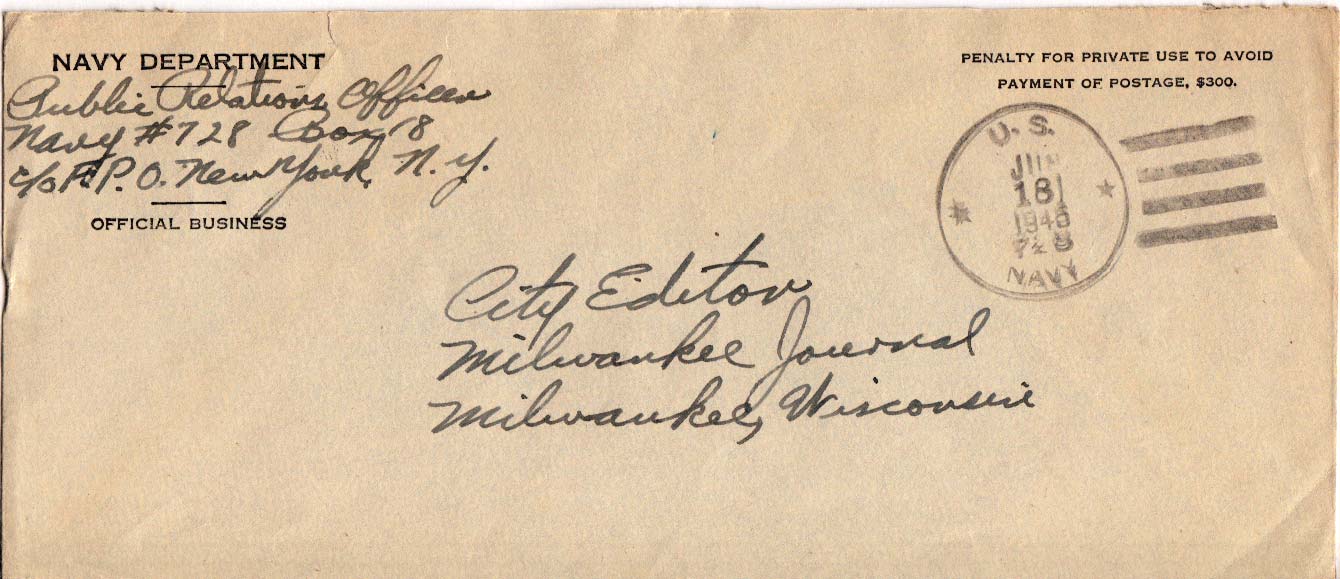 NAVY DEPARTMENT
Public Relations Officer
Navy #728 Box 18
c/o F.P.O. New York, N.Y.
OFFICIAL BUSINESS
PENALTY FOR PRIVATE USE TO AVOID
PAYMENT OF POSTAGE, $300.
U.S.
JUN
18
728
NAVY
City Editor
Milwaukee Journal
Milwaukee, Wisconsin